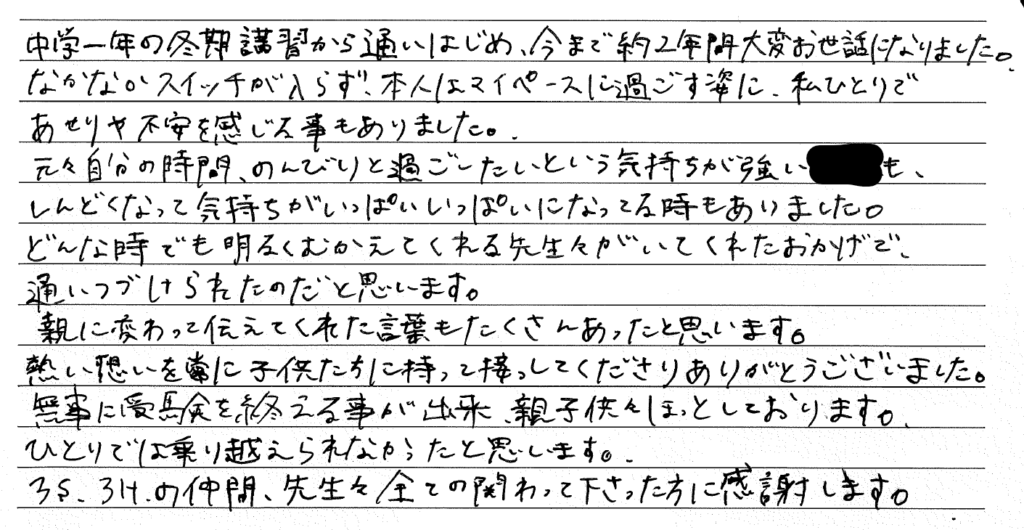 中学一年の冬期講習から通いはじめ、今まで約2年間大変お世話になりました。
なかなかスイッチが入らず、本人はマイペースに過ごす姿に、私ひとりで
あせりや不安を感じる事もありました。
元々自分の時間、のんびりと過ごしたいという気持ちが強い も、
しんどくなって気持ちがいっぱいいっぱいになってる時もありました。
どんな時でも明るくむかえてくれる先生々がいてくれたおかげで、
通いつづけられたのだと思います。
親に変わって伝えてくれた言葉もたくさんあったと思います。
熱い想いを常に子供たちに持って接してくださりありがとうございました。
無事に受験を終える事が出来、親子供々ほっとしております。
ひとりでは乗り越えられなかったと思います。
3S、3H、の仲間、先生々全ての関わって下さった方に感謝します。